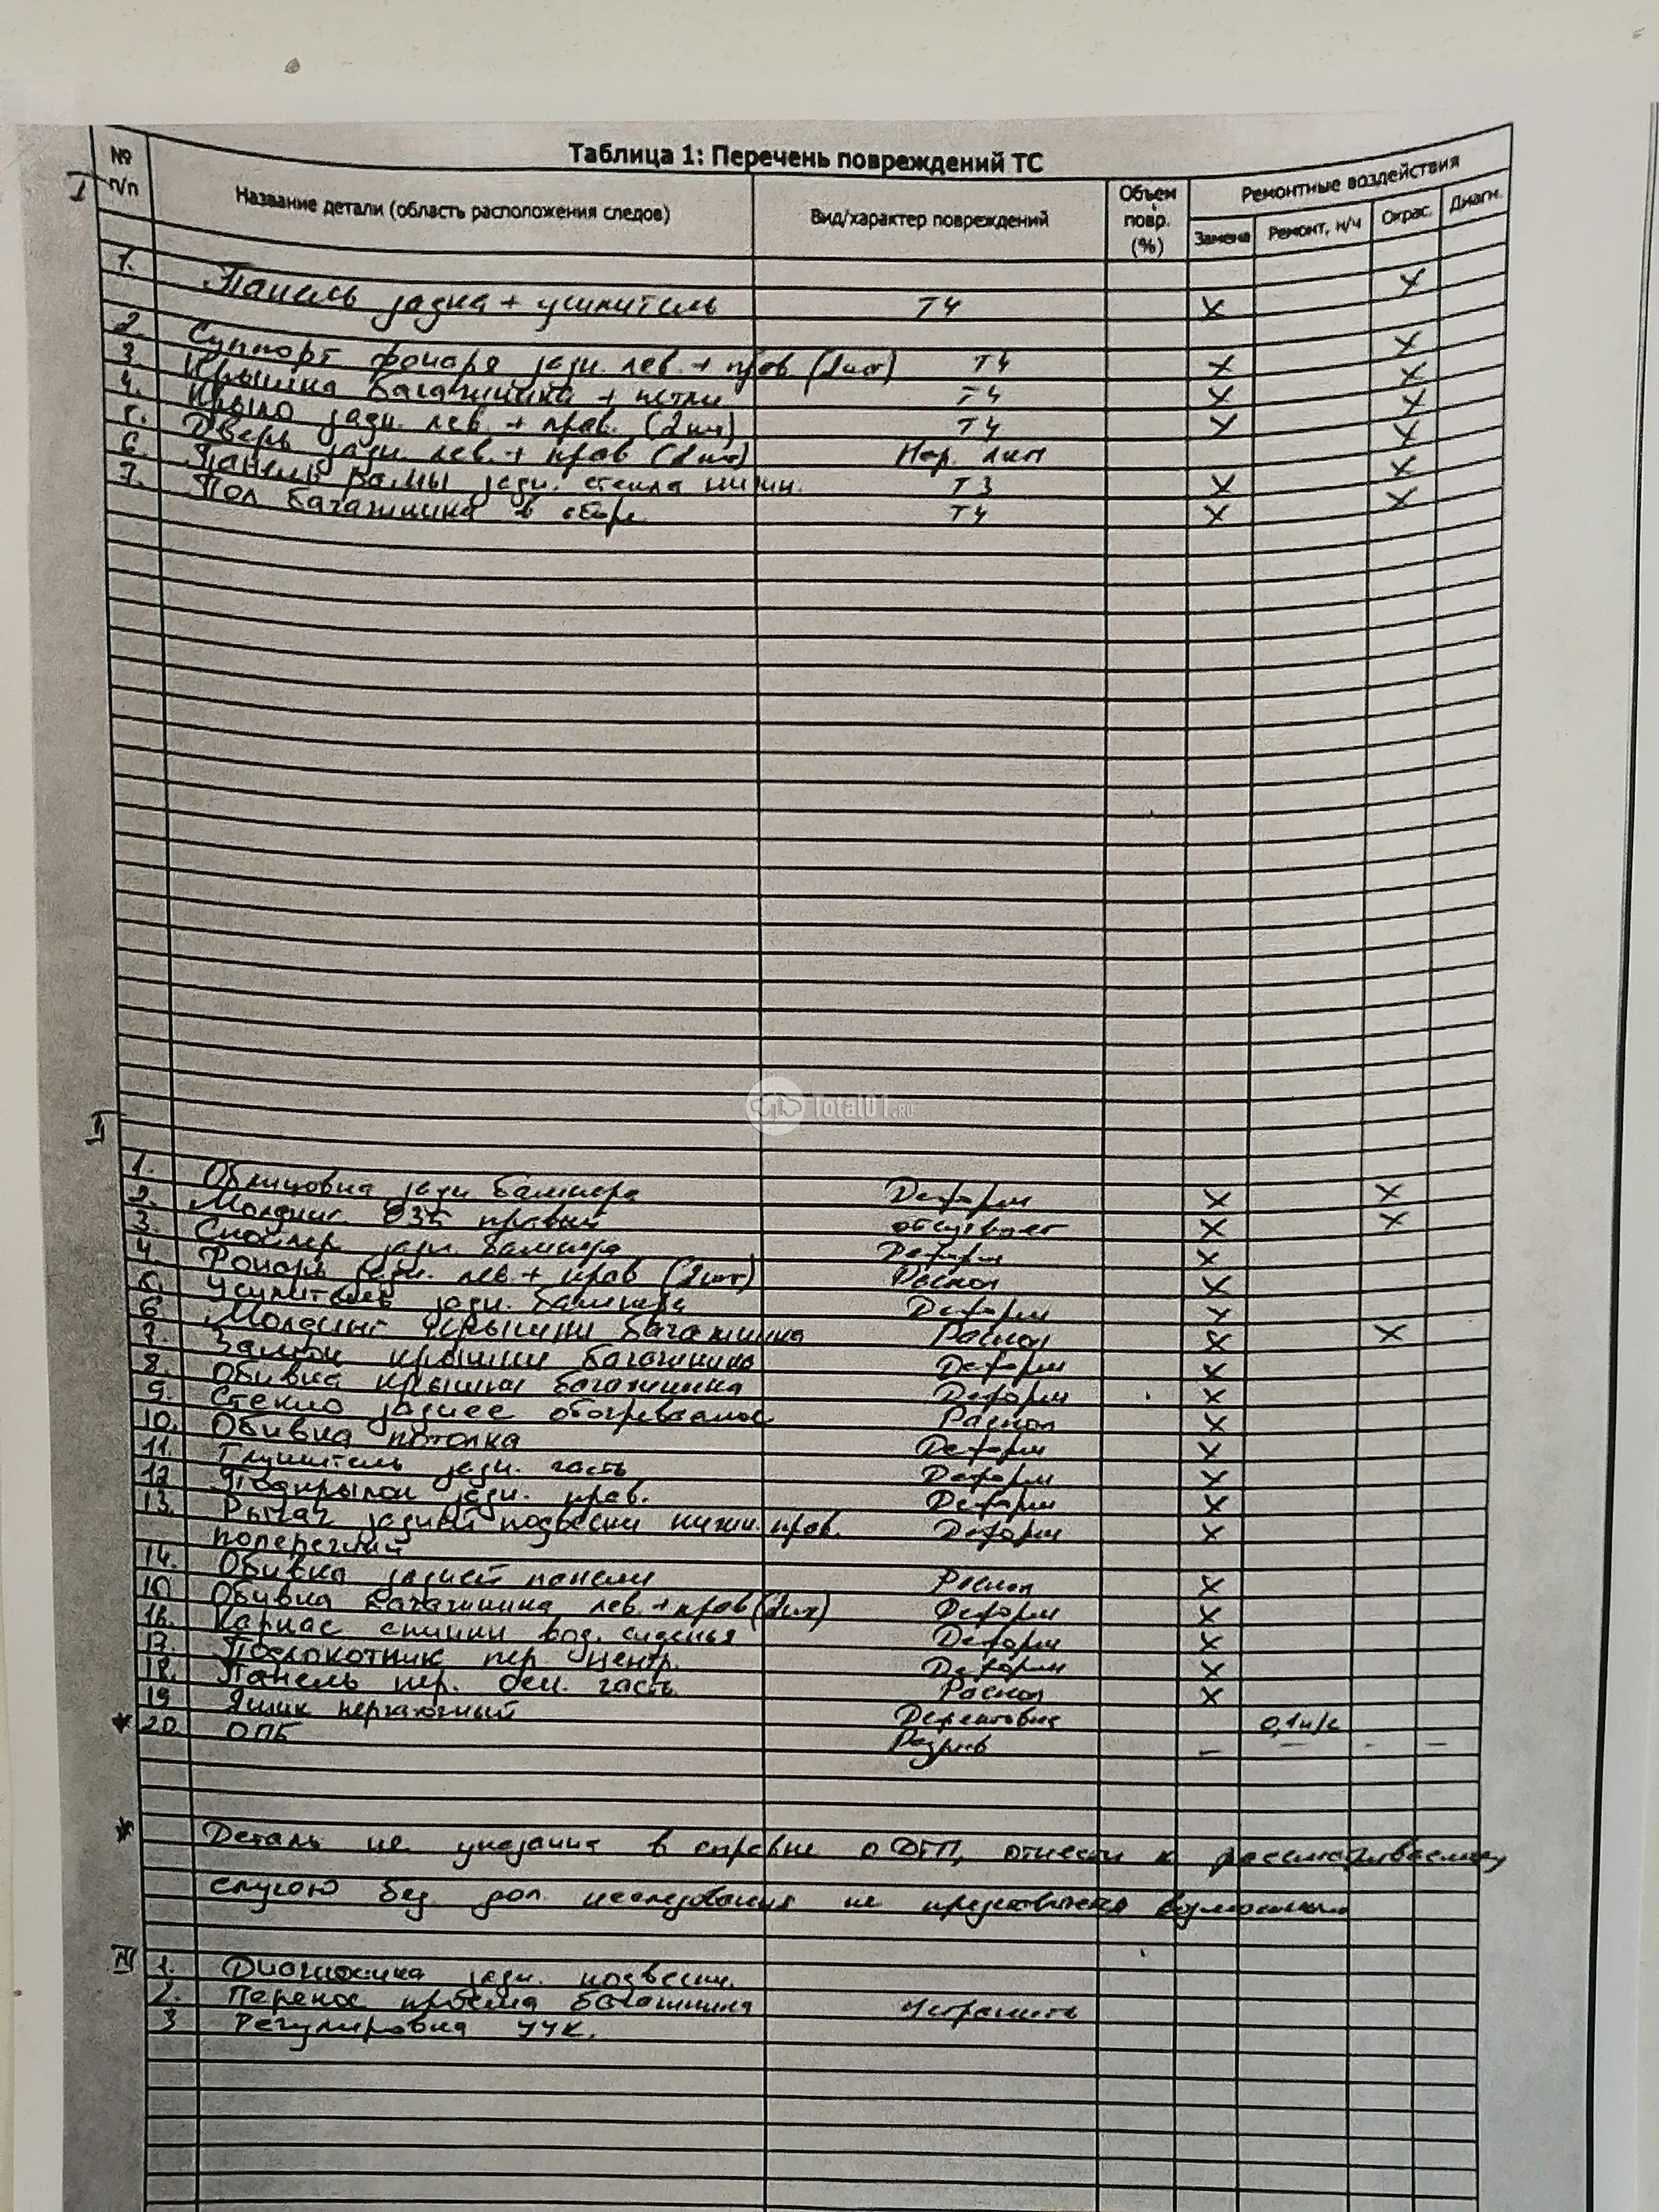 Таблица 1: Перечень повреждений ТС
№ п/п
Название детали (область расположения следов)
Вид/характер повреждений
Объем повр. (%)
Ремонтные воздействия
Замена Ремонт, н/ч Окрас. Диагн.
I
1. Панель задка + усилитель Т4 X X
2. Суппорт фонаря задн. лев. + прав (2шт) Т4 X X
3. Крышка багажника + петли Т4 X X
4. Крыло задн. лев. + прав. (2шт) Т4 X X
5. Дверь задн. лев. + прав (2шт) X
6. Панель рамы задн. стекла нижн. Т3 X X
7. Пол багажника в сборе Т4 X X
Total01.RU
II
1. Облицовка задн бампера Деформ X X
2. Молдинг правый отсутствует X X
3. Спойлер задн. бампера Деформ X
4. Фонарь задн. лев. + прав (2шт) Раскол X
5. Усилитель задн. бампера Деформ X
6. Молдинг крышки багажника Раскол X X
7. Замок крышки багажника Деформ X
8. Обивка крышки багажника Деформ X
9. Стекло заднее обогреваемое Раскол X
10. Обивка потолка Деформ X
11. Глушитель задн. часть Деформ X
12. Подкрылок задн. прав. Деформ X
13. Рычаг задней подвески нижн. прав. Деформ X
поперечный
14. Обивка задней панели Раскол X
15 Обивка багажника лев. + прав (2шт) Деформ X
16. Каркас спинки вод. сиденья Деформ X
17. Подлокотник пер. центр. Деформ X
18. Панель пер. часть Раскол X
19 Ящик перчаточный 0,1н/ч
* 20 ОПБ Разрыв — — - —
* Деталь не указана в справке о ДТП, отнести к рассматриваемому
случаю без доп. исследования не представляется возможным
III
1. Диагностика задн. подвески.
2. Перекос проема багажника Устранить
3 Регулировка УУК.